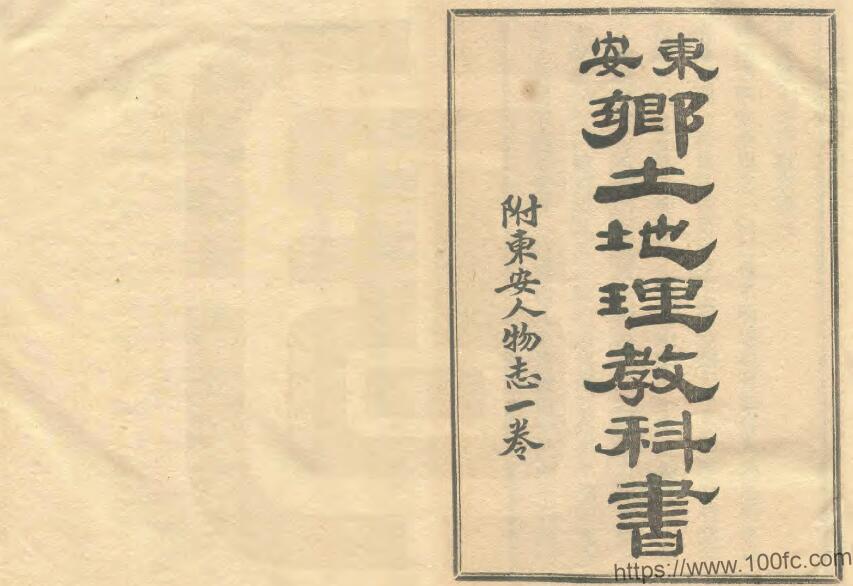 東安
鄉土地理教科書
附東安人物志一卷
https://www.100fc.com